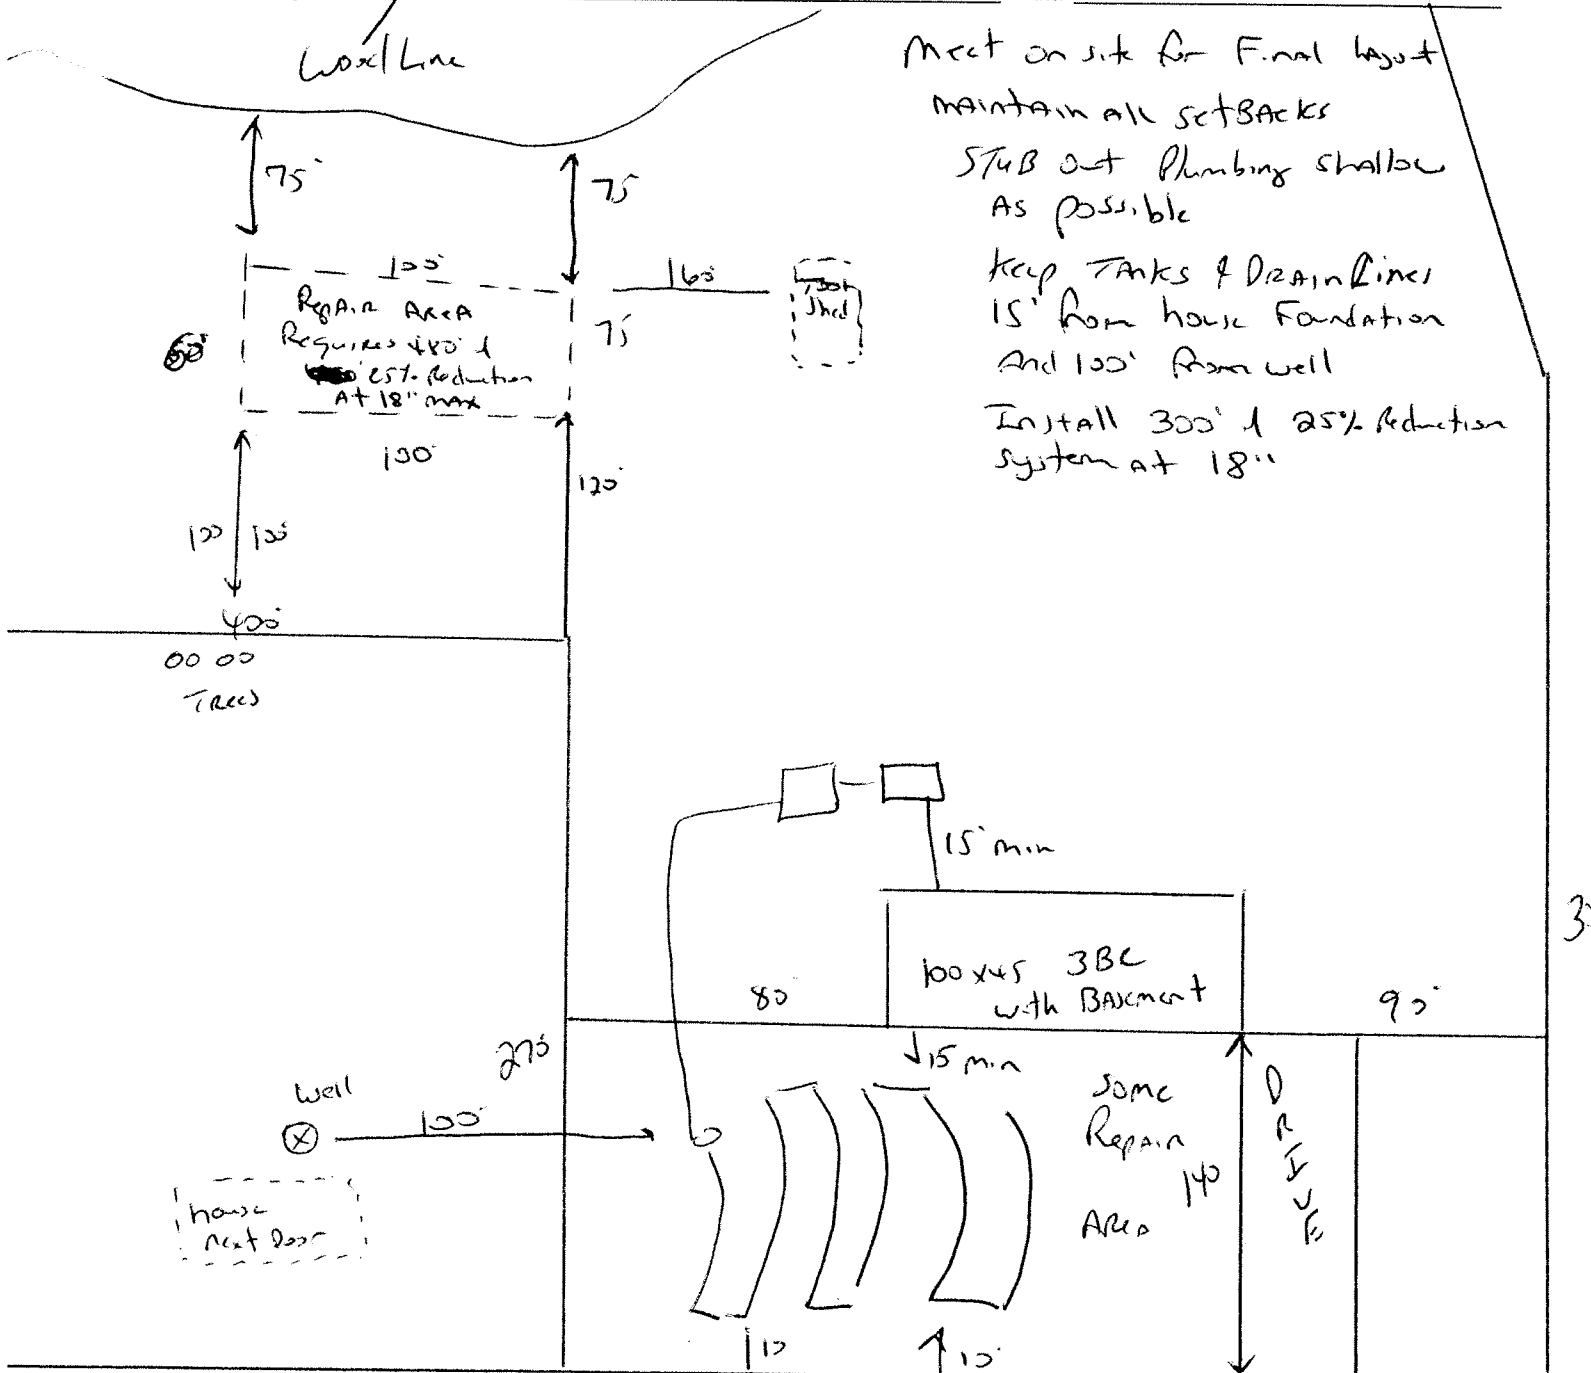 Wood Line
Meet on site for Final Layout
MAintAin All setBAcks
STuB out Plumbing shallow
As possible
Keep TAnks & DRAin Lines
15' from house Foundation
And 100' from well
InstAll 300' of 25% Reduction
system At 18"
75'
75
100'
160'
shed
RepAiR AReA
Requires 480' of
25% Reduction
At 18" mAx
75'
60'
100'
120'
100
100'
400'
00 00
TRees
15' min
100 x 45 3BC
with BAsement
80'
90'
270'
15 min
well
100'
Some
RepAir
AreA
140
DRIVE
house
next Door
10
10'